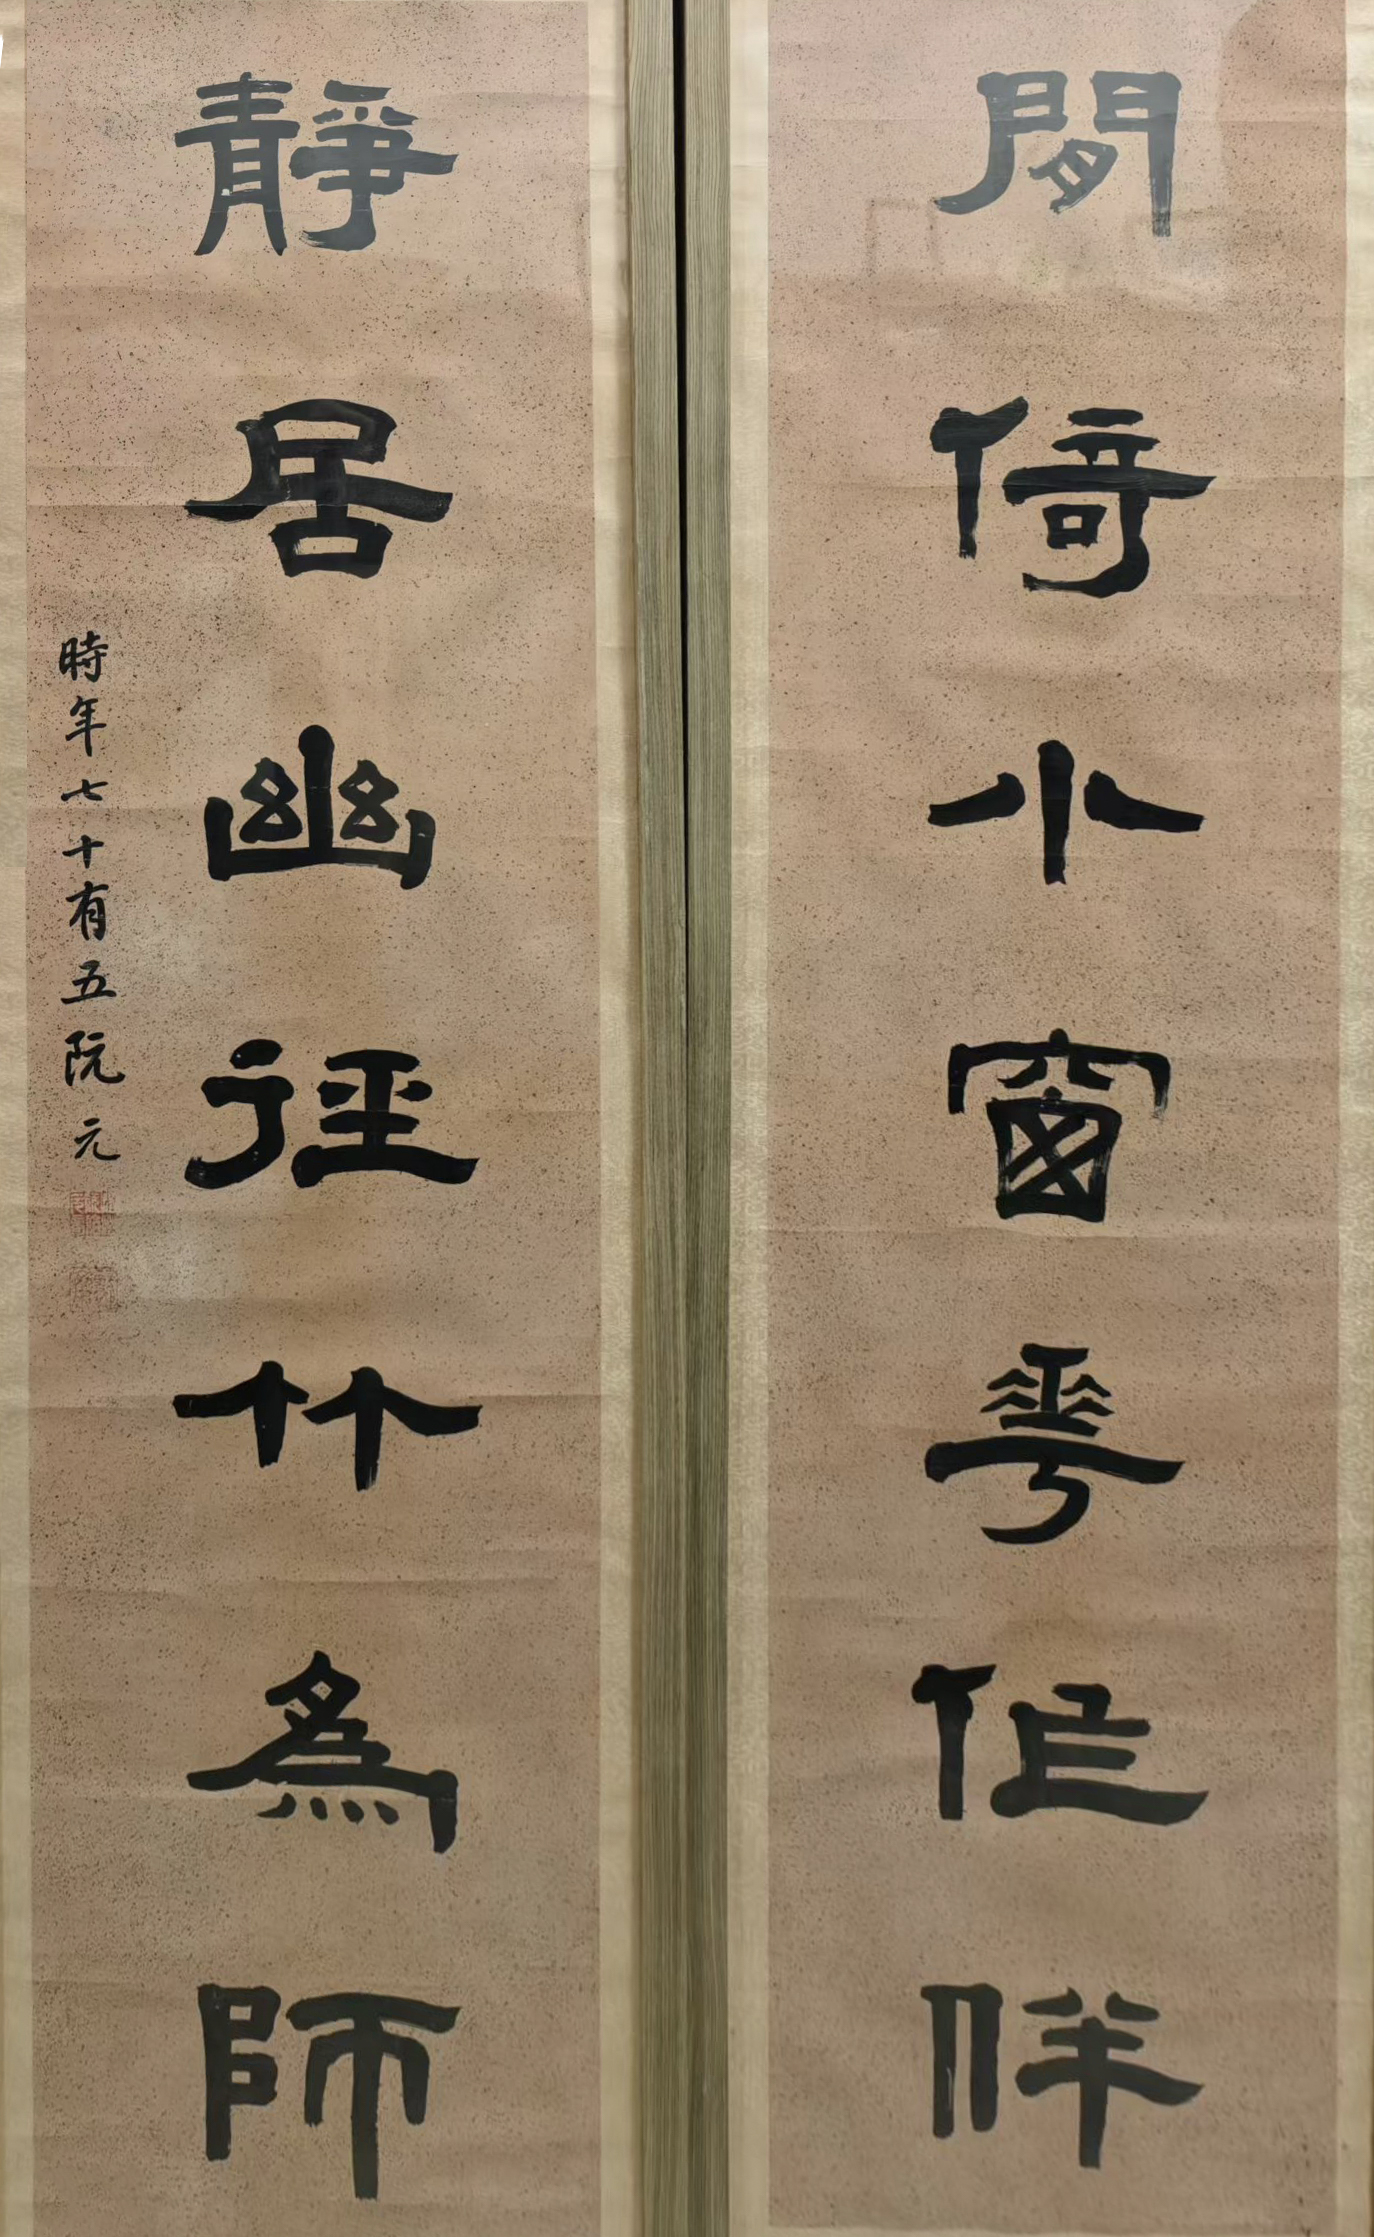 閒倚小窗華作伴
靜居幽徑竹爲師
時年七十有五阮元